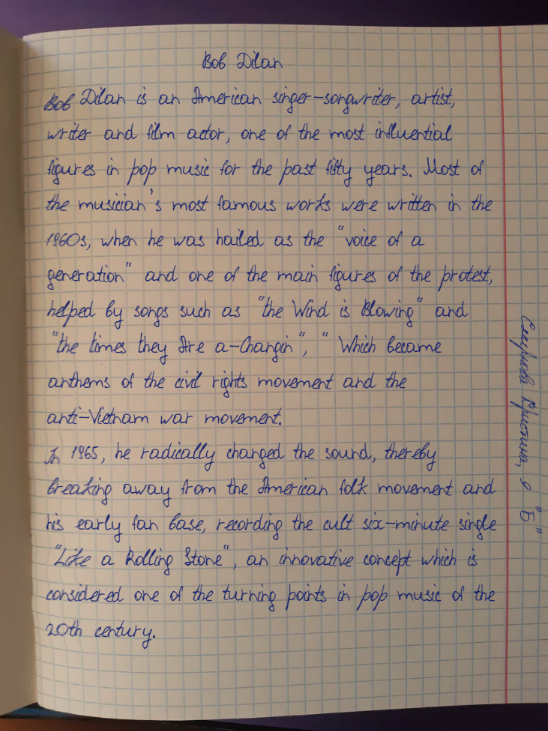 Bob Dilan
Bob Dilan is an American singer-songwriter, artist,
writer and film actor, one of the most influential
figures in pop music for the past fifty years. Most of
the musician's most famous works were written in the
1960s, when he was hailed as the "voice of a
generation" and one of the main figures of the protest,
helped by songs such as "the Wind is Blowing" and
"the times they Are a-Changin", " Which became
anthems of the civil rights movement and the
anti-Vietnam war movement.
In 1965, he radically changed the sound, thereby
breaking away from the American folk movement and
his early fan base, recording the cult six-minute single
"Like a Rolling Stone", an innovative concept which is
considered one of the turning points in pop music of the
20th century.
Кристина, 9 "Б"